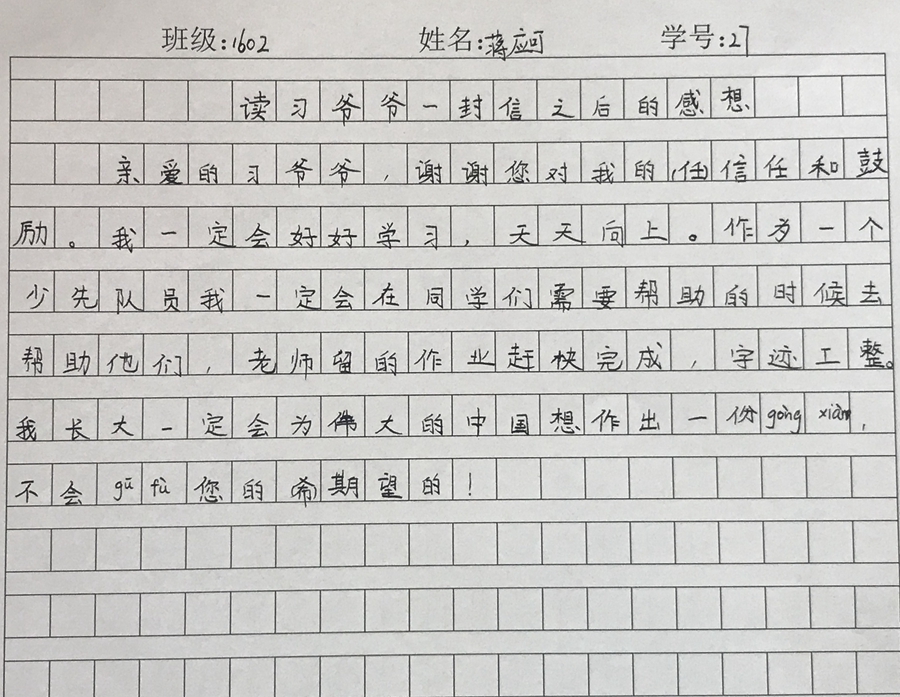 班级:1602 姓名:蒋应可 学号:27
读习爷爷一封信之后的感想
亲爱的习爷爷，谢谢您对我的(任)信任和鼓
励。我一定会好好学习，天天向上。作为一个
少先队员我一定会在同学们需要帮助的时候去
帮助他们，老师留的作业赶快完成，字迹工整。
我长大一定会为伟大的中国想作出一份gòng xiàn，
不会gū fù您的(希)期望的！